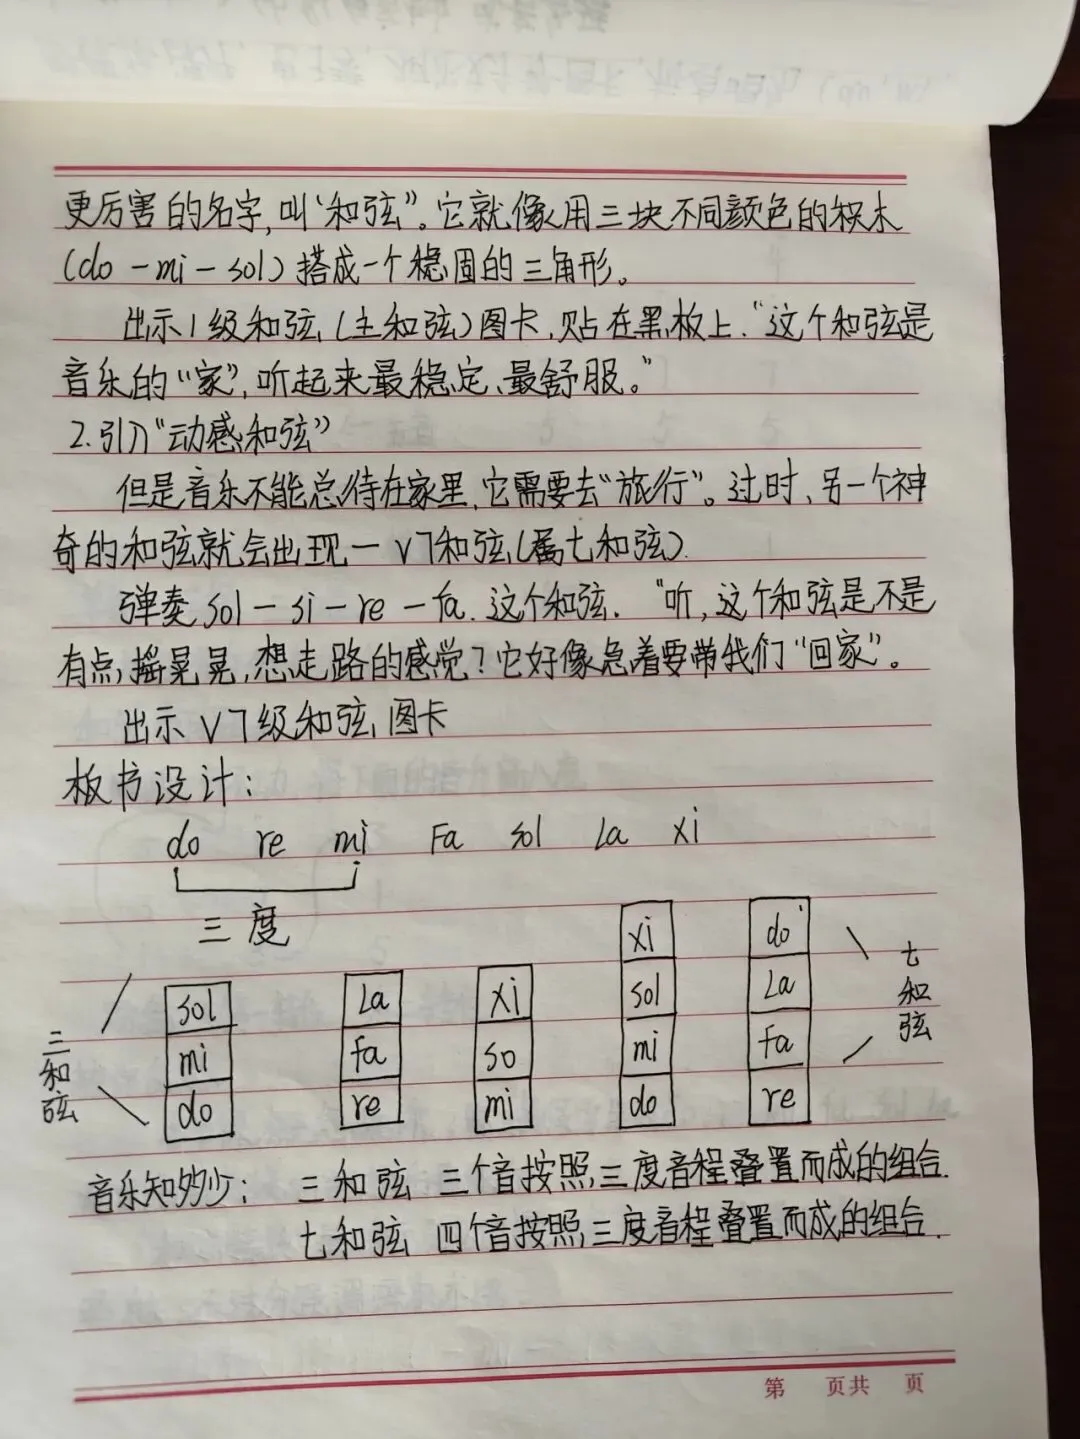 更厉害的名字,叫“和弦”。它就像用三块不同颜色的积木
(do-mi-sol)搭成一个稳固的三角形。
出示1级和弦(主和弦)图卡,贴在黑板上.“这个和弦是
音乐的“家”,听起来最稳定、最舒服。”
2.引入“动感和弦”
但是音乐不能总待在家里,它需要去“旅行”。过时,另一个神
奇的和弦就会出现一V7和弦(属七和弦).
弹奏sol-si-re-fa.这个和弦.“听,这个和弦是不是
有点摇晃晃,想走路的感觉?它好像急着要带我们“回家”。
出示V7级和弦图卡
板书设计:
do re mi Fa sol La xi
三度
xi do
sol La xi sol La
mi fa so mi fa
do re mi do re
三和弦
七和弦
音乐知妙少: 三和弦 三个音按照三度音程叠置而成的组合.
七和弦 四个音按照三度音程叠置而成的组合.
第 页共 页